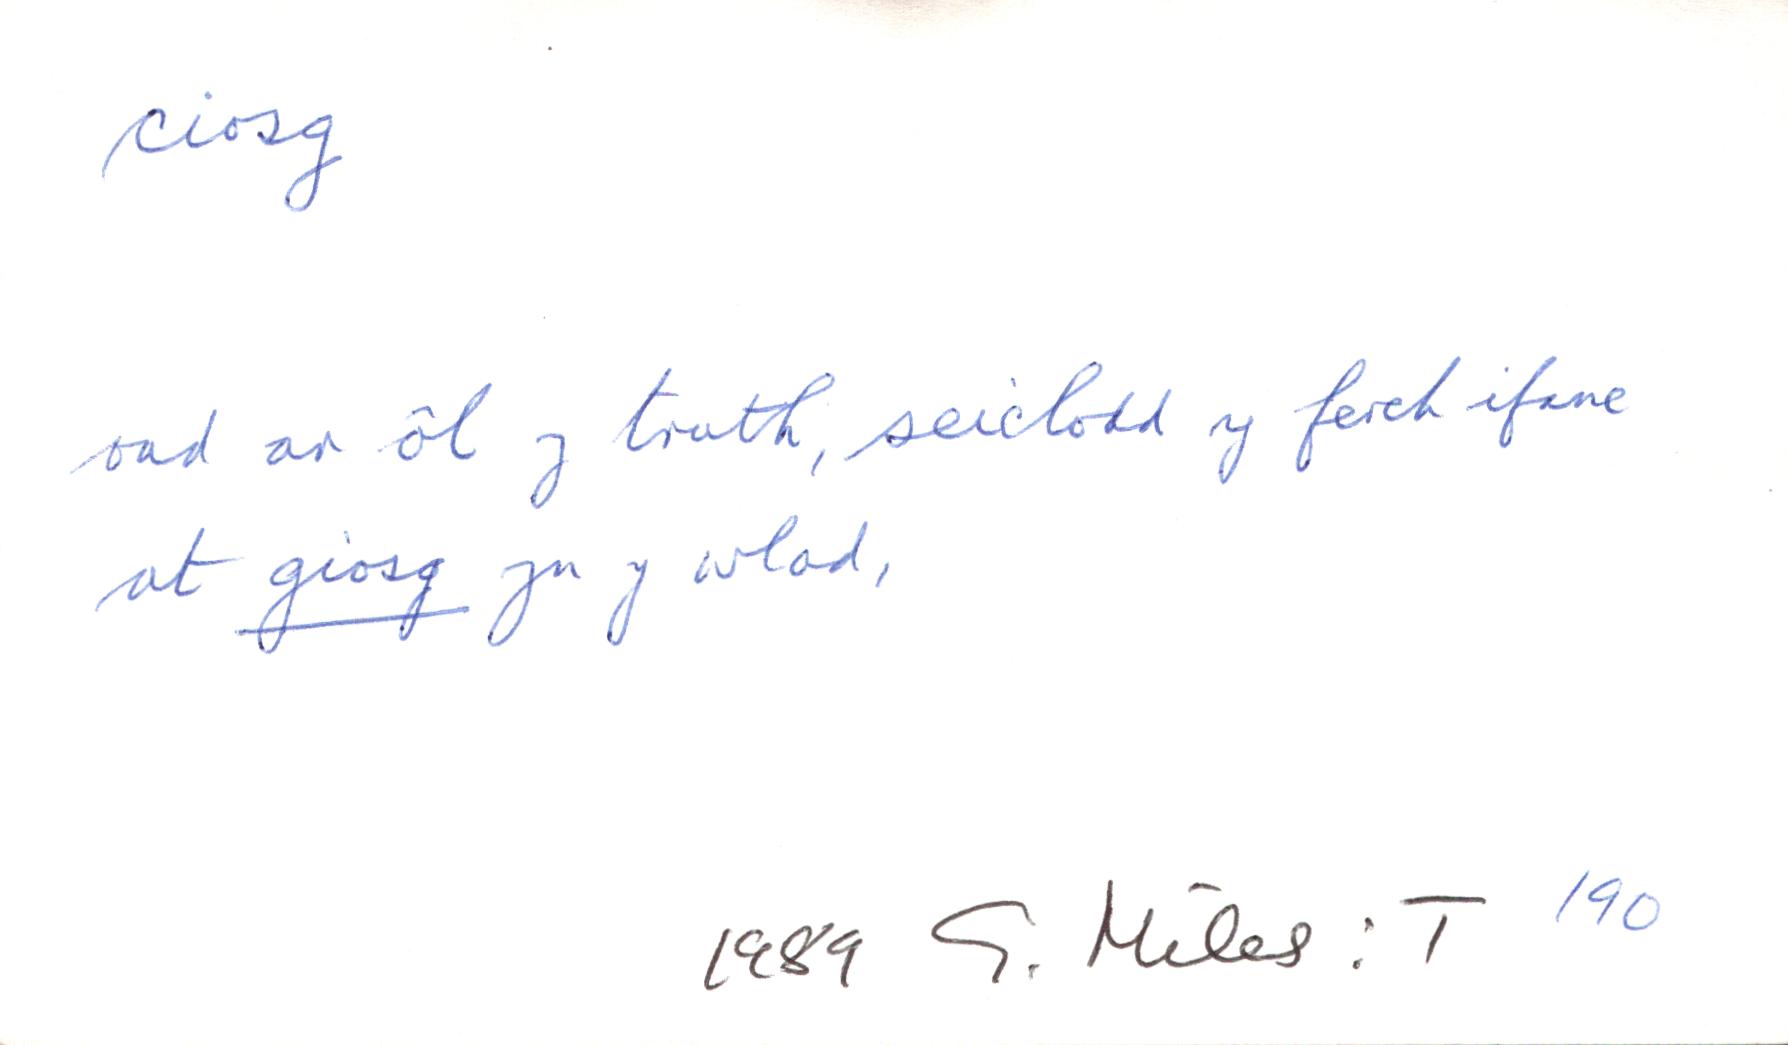 ciosg
ond ar ôl y truth, seiclodd y ferch ifanc
at giosg yn y wlad,
1989 G. Miles: T 190